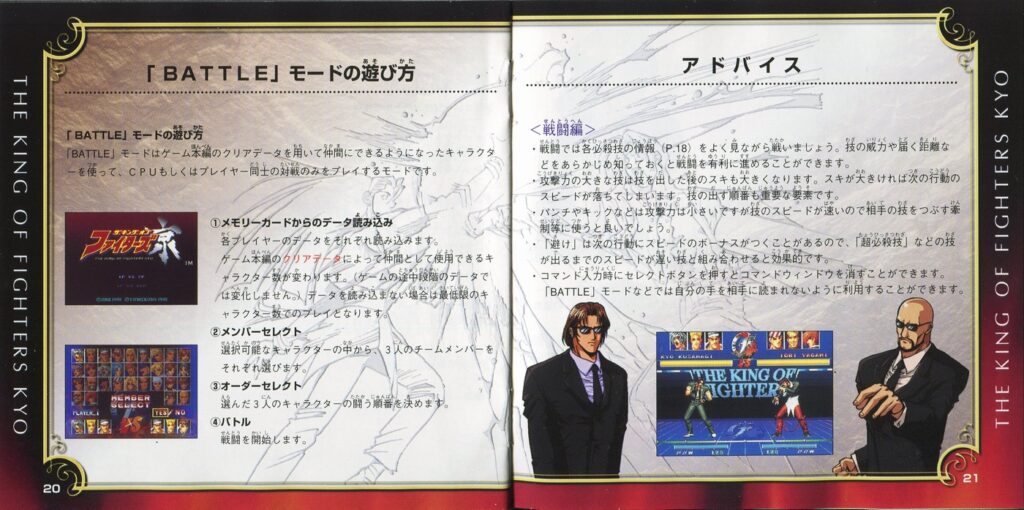 THE KING OF FIGHTERS KYO
「BATTLE」モードの遊び方
「BATTLE」モードの遊び方
「BATTLE」モードはゲーム本編のクリアデータを用いて仲間にできるようになったキャラクタ
ーを使って、CPUもしくはプレイヤー同士の対戦のみをプレイするモードです。
ザ・キング・オブ
ファイターズ京
TM
①メモリーカードからのデータ読み込み
各プレイヤーのデータをそれぞれ読み込みます。
ゲーム本編のクリアデータによって仲間として使用できるキ
ャラクター数が変わります。（ゲームの途中段階のデータで
は変化しません。）データを読み込まない場合は最低限のキ
ャラクター数でのプレイとなります。
②メンバーセレクト
選択可能なキャラクターの中から、3人のチームメンバーを
それぞれ選びます。
③オーダーセレクト
選んだ3人のキャラクターの闘う順番を決めます。
④バトル
戦闘を開始します。
MEMBER
SELECT
PLAYER_1
YES/NO
20
アドバイス
＜戦闘編＞
・戦闘では各必殺技の情報（P.18）をよく見ながら戦いましょう。技の威力や届く距離な
どをあらかじめ知っておくと戦闘を有利に進めることができます。
・攻撃力の大きな技は技を出した後のスキも大きくなります。スキが大きければ次の行動の
スピードが落ちてしまいます。技の出す順番も重要な要素です。
・パンチやキックなどは攻撃力は小さいですが技のスピードが速いので相手の技をつぶす牽
制等に使うと良いでしょう。
・「避け」は次の行動にスピードのボーナスがつくことがあるので、「超必殺技」などの技
が出るまでのスピードが遅い技と組み合わせると効果的です。
・コマンド入力時にセレクトボタンを押すとコマンドウィンドウを消すことができます。
「BATTLE」モードなどでは自分の手を相手に読まれないように利用することができます。
KYO KUSANAGI
IORY YAGAMI
THE KING OF
FIGHTERS
21
THE KING OF FIGHTERS KYO